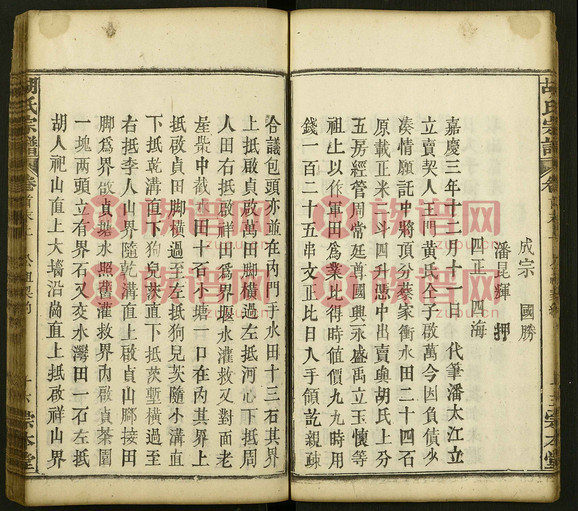 成宗
國勝
潘昆輝 押
四正 四海
嘉慶三年十二月十一日 代筆潘太江立
立賣契人王門黃氏仝子啟萬今因負債少
湊情願託中將頂分蔡家衝水田二十四石
原載正米 斗四升憑中出賣與胡氏上分
五房經管周常廷尊國興永盛禹立玉懷等
祖上以作 田為業比得時值價九九時用
錢一百二十五串文正比日人手領訖親疎
合議包頭亦並在內門手水田十三石其界
上抵啟貞啟萬田脚橫過左抵河心下抵周
人田右抵祥田為界堰水灌救又對面老
屋 中截 田十石小塘一口在內其界上
抵啟貞田脚橫過至左抵狗兒芵隨小溝直
下抵乾溝直下狗兒芵直下抵茨塹橫過至
右抵李人山界隨乾溝直上啟貞山脚接田
脚爲界 貞塘水照舊灌救界內啟貞茶園
一塊兩頭立有界石又交水灣田一石左抵
胡人祀山直上大墻沿崗直上抵啟祥山界
胡氏宗譜
卷首
胡氏宗譜
卷首
敦本堂
族谱网
zupu.cn